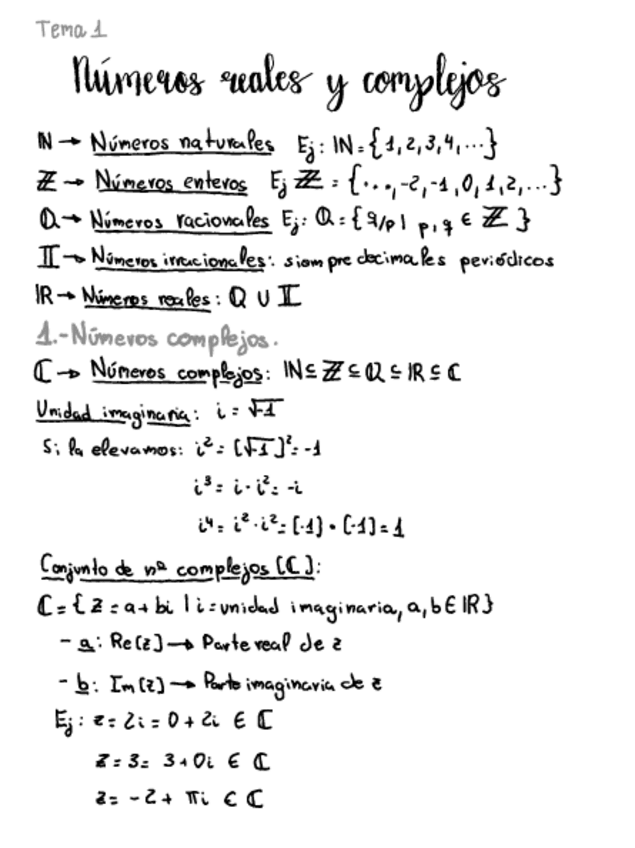 Tema 1
Números reales y complejos
ℕ → Números naturales Ej: ℕ = {1, 2, 3, 4, ...}
ℤ → Números enteros Ej ℤ = {..., -2, -1, 0, 1, 2, ...}
ℚ → Números racionales Ej: ℚ = {q/p | p, q ∈ ℤ}
𝕀 → Números irracionales: siempre decimales periódicos
ℝ → Números reales: ℚ ∪ 𝕀
1.-Números complejos.
ℂ → Números complejos: ℕ ⊆ ℤ ⊆ ℚ ⊆ ℝ ⊆ ℂ
Unidad imaginaria: i = √-1
Si la elevamos: i² = [√-1]² = -1
i³ = i · i² = -i
i⁴ = i² · i² = [-1] · [-1] = 1
Conjunto de nº complejos [ℂ]:
ℂ = {z = a + bi | i = unidad imaginaria, a, b ∈ ℝ}
- a: Re[z] → Parte real de z
- b: Im[z] → Parte imaginaria de z
Ej: z = 2i = 0 + 2i ∈ ℂ
z = 3 = 3 + 0i ∈ ℂ
z = -2 + πi ∈ ℂ